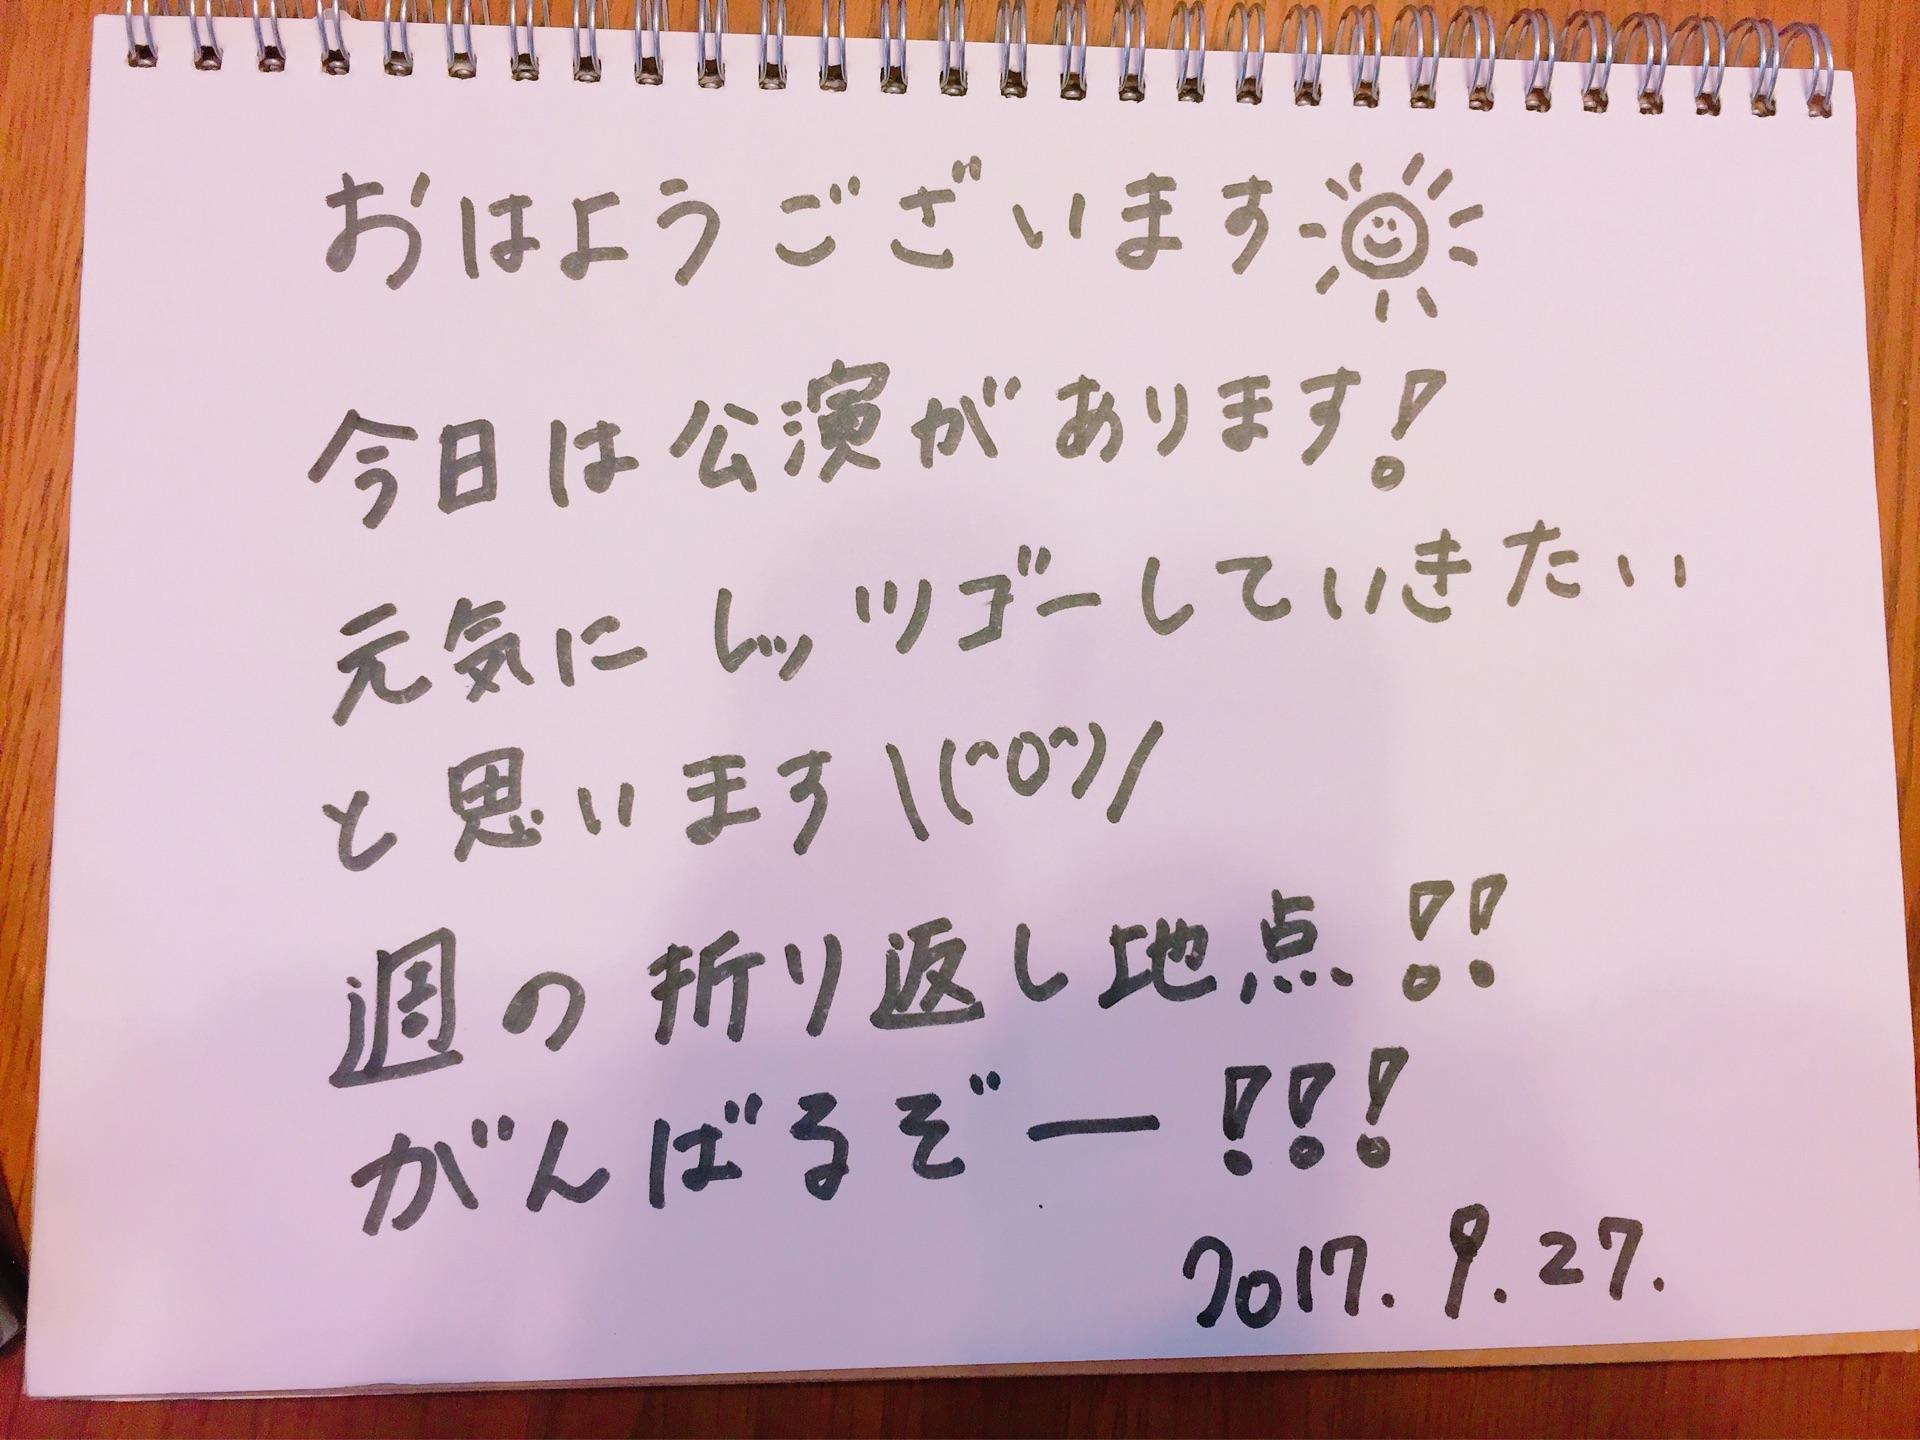 おはようございます
今日は公演があります!
元気にレッツゴーしていきたい
と思います\(^O^)/
週の折り返し地点!!
がんばるぞー!!!
2017.9.27.